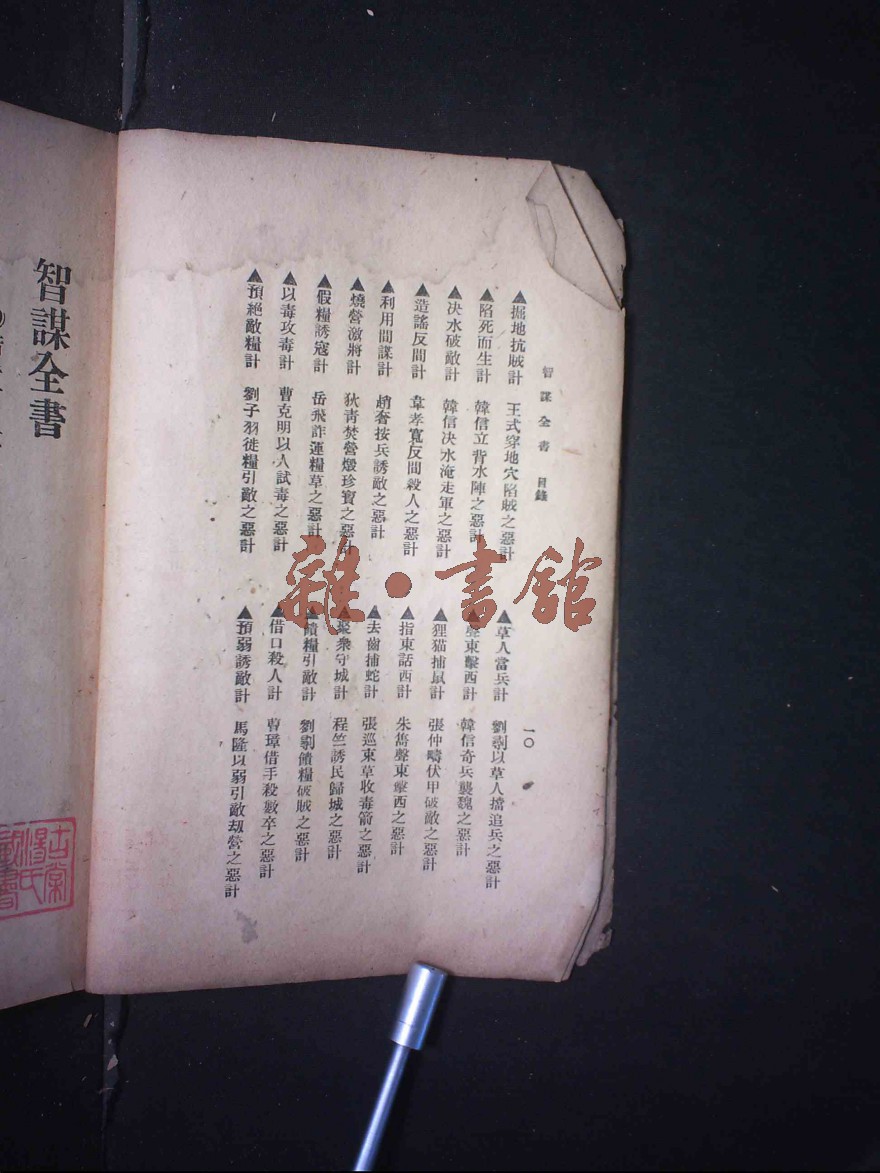 智謀全書 目錄
一〇
▲掘地抗賊計 王式穿地穴陷賊之惡計
▲陷死而生計 韓信立背水陣之惡計
▲決水破敵計 韓信決水淹走軍之惡計
▲造謠反間計 韋孝寬反間殺人之惡計
▲利用間諜計 趙奢按兵誘敵之惡計
▲燒營激將計 狄青焚營燬珍寶之惡計
▲假糧誘寇計 岳飛詐運糧草之惡計
▲以毒攻毒計 曹克明以人試毒之惡計
▲預絕敵糧計 劉子羽徙糧引敵之惡計
▲草人當兵計 劉鄩以草人擋追兵之惡計
▲聲東擊西計 韓信奇兵襲魏之惡計
▲狸猫捕鼠計 張仲疇伏甲破敵之惡計
▲指東話西計 朱雋聲東擊西之惡計
▲去齒捕蛇計 張巡束草收毒箭之惡計
▲聚衆守城計 程竺誘民歸城之惡計
▲饋糧引敵計 劉鄩饋糧破賊之惡計
▲借口殺人計 曹璋借手殺數卒之惡計
▲預弱誘敵計 馬隆以弱引敵刼營之惡計
智謀全書
雜·書館